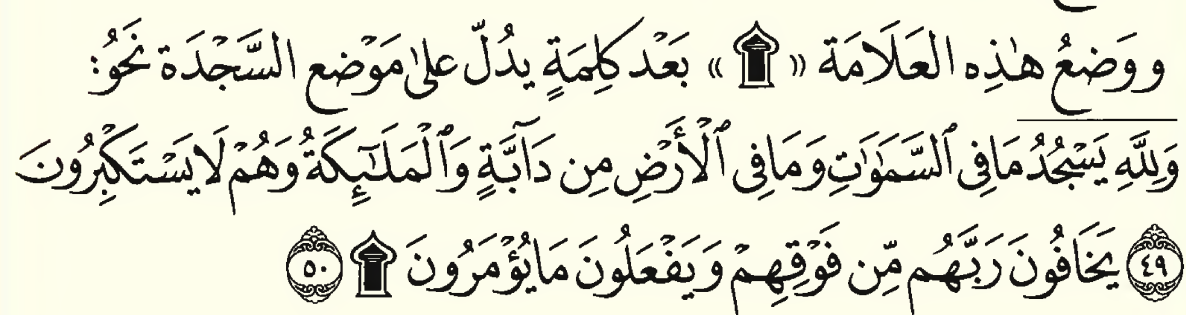 ووَضعُ هٰذِه العَلَامَة «۩» بَعْد كلِمَةٍ يدُلّ علىٰ مَوْضع السَّجْدَة نَحُو:
وَلِلَّهِ يَسۡجُدُ مَا فِي ٱلسَّمَٰوَٰتِ وَمَا فِي ٱلۡأَرۡضِ مِن دَآبَّةٖ وَٱلۡمَلَٰٓئِكَةُ وَهُمۡ لَا يَسۡتَكۡبِرُونَ
٤٩ يَخَافُونَ رَبَّهُم مِّن فَوۡقِهِمۡ وَيَفۡعَلُونَ مَا يُؤۡمَرُونَ ۩ ٥٠